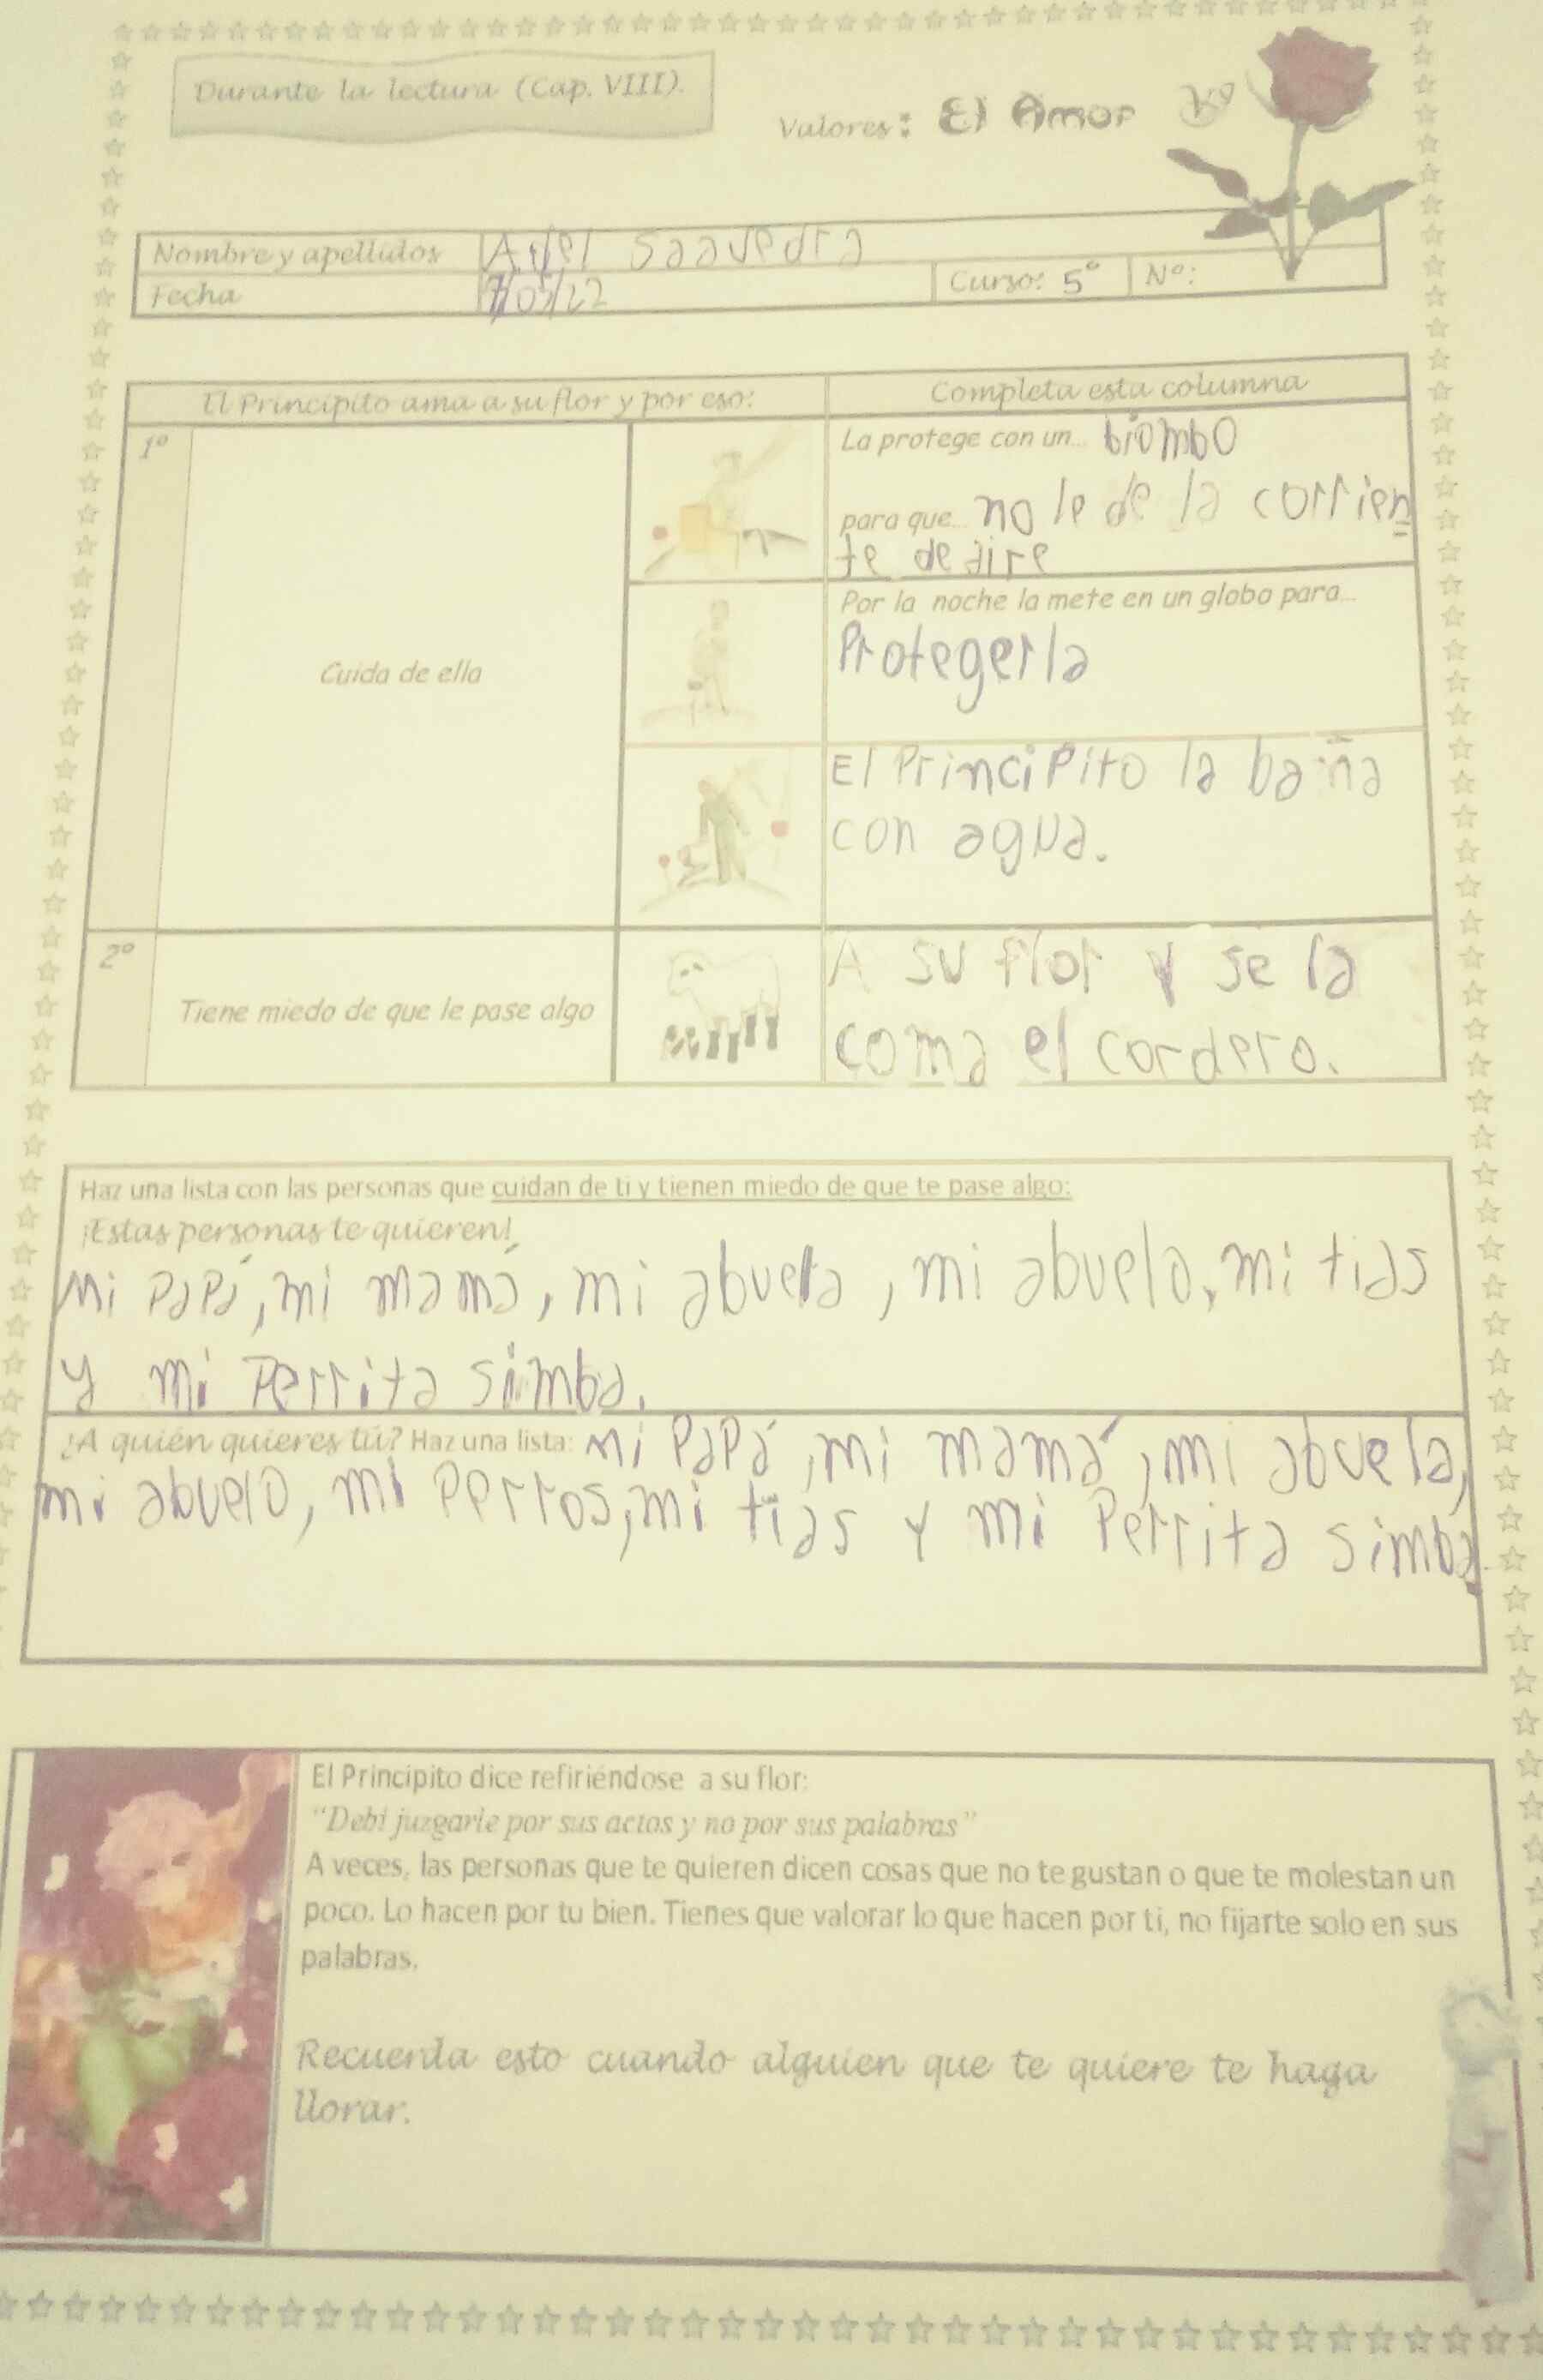 Durante la lectura (Cap. VIII).
Valores: El Amor
Nombre y apellidos Saavedra
Fecha /05/22 Curso: 5° Nº:
El Principito ama a su flor y por eso: Completa esta columna
1º
La protege con un... biombo
para que... no le de la corrien
te de aire
Por la noche la mete en un globo para...
Protegerla
Cuida de ella
El Principito la baña
con agua.
2º
Tiene miedo de que le pase algo
A su flor y se la
coma el cordero.
Haz una lista con las personas que cuidan de ti y tienen miedo de que te pase algo:
¡Estas personas te quieren!
Mi Papá, mi mamá, mi abuela, mi abuelo, mi tias
y mi Perrita simba.
¿A quién quieres tú? Haz una lista: Mi PaPá, mi mamá, mi abuela,
mi abuelo, mi Perros, mi tias y mi Perrita simba.
El Principito dice refiriéndose a su flor:
“Debí juzgarle por sus actos y no por sus palabras”
A veces, las personas que te quieren dicen cosas que no te gustan o que te molestan un
poco. Lo hacen por tu bien. Tienes que valorar lo que hacen por ti, no fijarte solo en sus
palabras.
Recuerda esto cuando alguien que te quiere te haga
llorar.